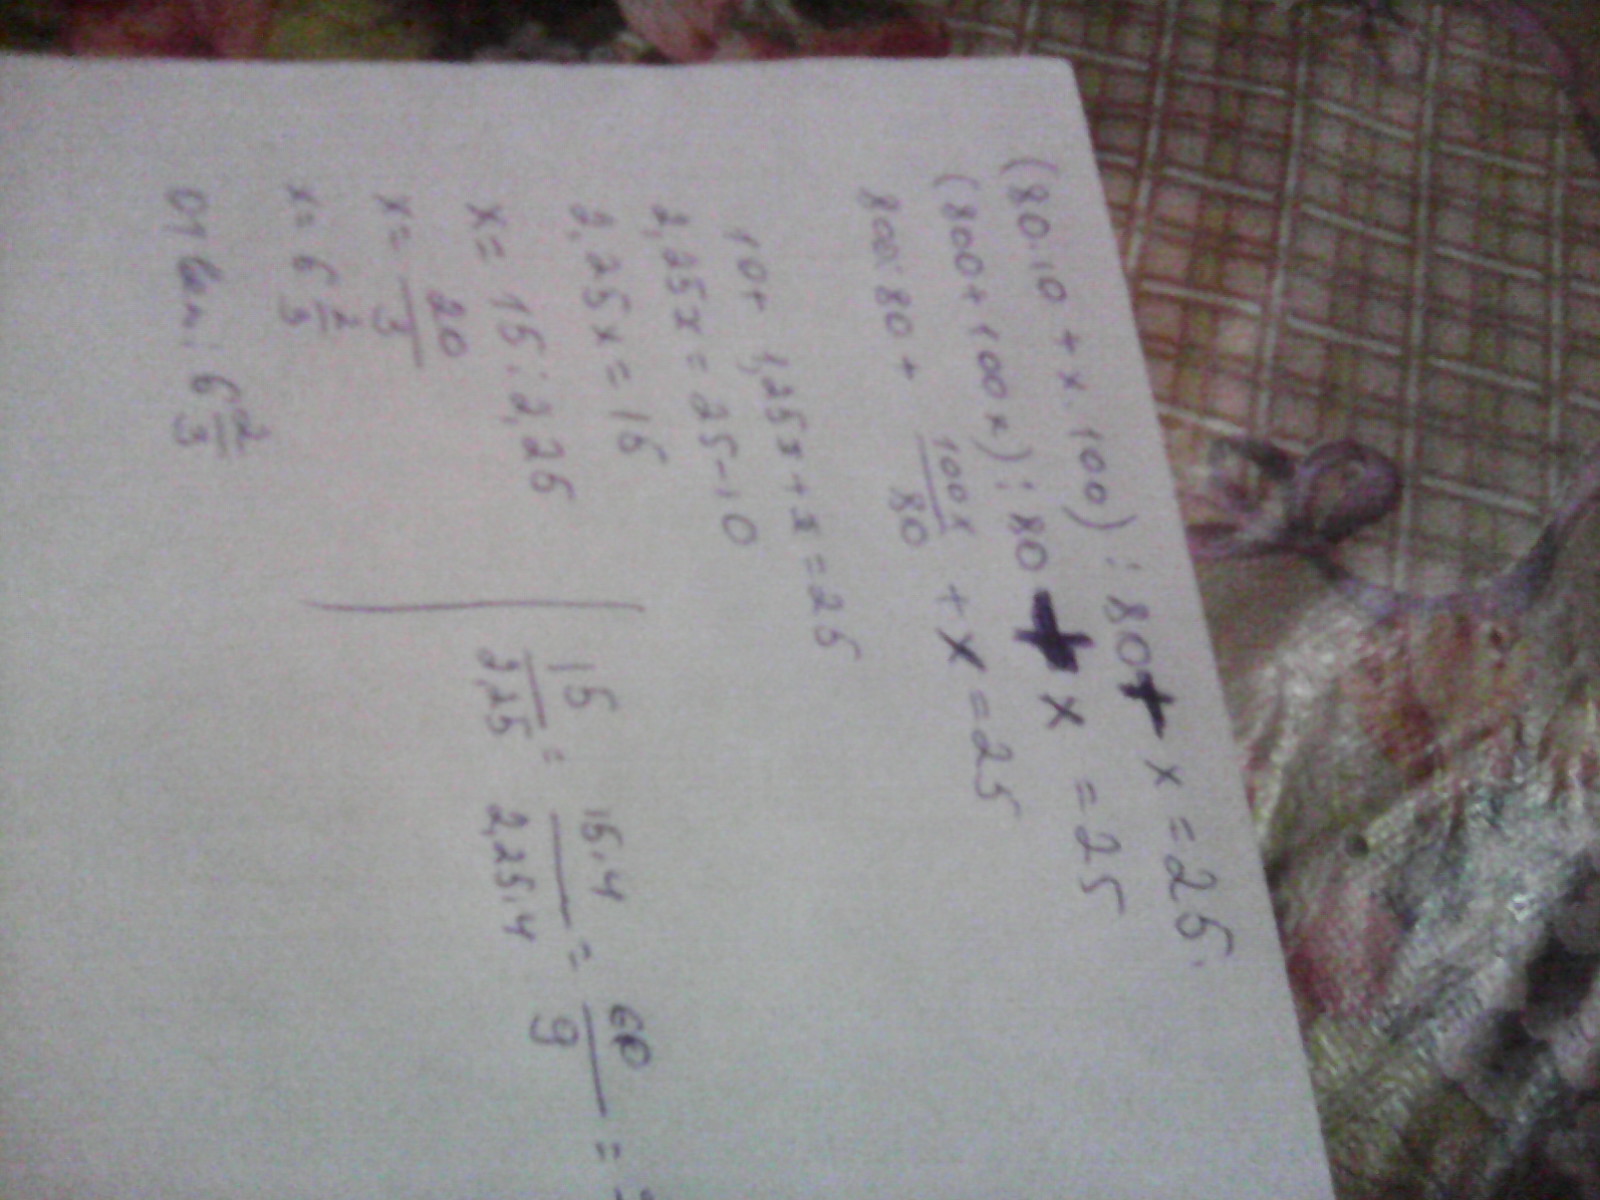 (80·10 + x·100) : 80 + x = 25.
(800 + 100x) : 80 + x = 25
800:80 + 100x/80 + x = 25
10 + 1,25x + x = 25
2,25x = 25 - 10
2,25x = 15
x = 15 : 2,25
x = 20/3
x = 6 2/3
Ответ: 6 2/3
15/2,25 = 15·4/2,25·4 = 60/9 =